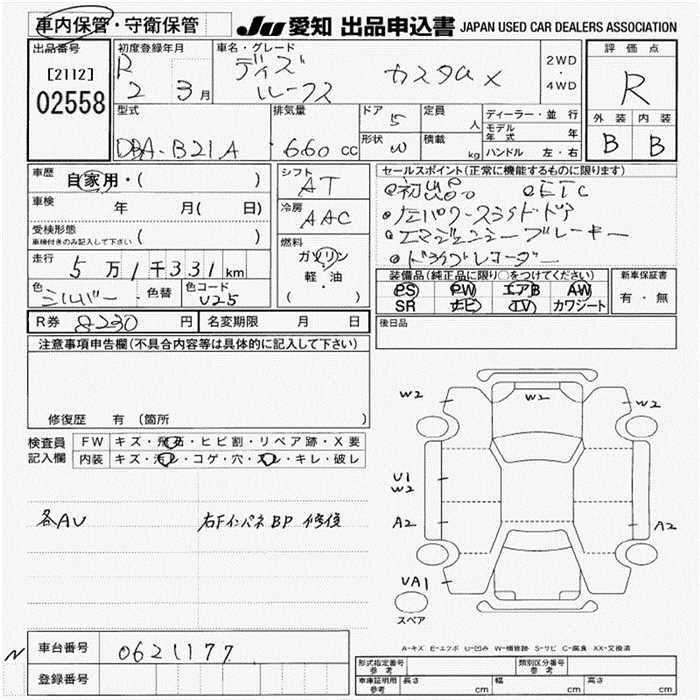 車内保管・守衛保管
JU 愛知 出品申込書 JAPAN USED CAR DEALERS ASSOCIATION
出品番号
[2112]
02558
初度登録年月
R 2 3月
車名・グレード
デイズ ルークス カスタム X
2WD
・
4WD
評価点
R
外装 内装
B B
型式
DBA-B21A
排気量
660 cc
ドア
5
形状
W
定員
人
積載
kg
ディーラー・並行
モデル年式 年
ハンドル 左・右
車歴 自家用・( )
車検 年 月( 日)
受検形態 ( )
車検付きのみ記入して下さい
走行 5万1千331km
色 シルバー ・色替
色コード
V25
シフト
AT
冷房
AAC
燃料
ガソリン
軽・油
( ・ )
R券 8230 円
名変期限 月 日
セールスポイント(正常に機能するものに限ります)
ETC
エマージェンシーブレーキー
ドライブレコーダー
装備品(純正品に限り○をつけてください)
PS PW エアB AW
SR ナビ TV カワシート
新車保証書
有・無
後日品
注意事項申告欄(不具合内容等は具体的に記入して下さい)
修復歴 有(箇所 )
検査員記入欄
FW キズ・飛石・ヒビ割・リペア跡・X要
内装 キズ・汚レ・コゲ・穴・スレ・キレ・破レ
各AU
右Fインパネ BP 修復
W2
W2
W2
U1
W2
A2
A2
UA1
スペア
A-キズ E-エクボ U-凹み W-補修跡 S-サビ C-腐食 XX-交換済
N
車台番号 0621177
登録番号
形式指定番号 参考
類別区分番号 参考
車庫証明用 参考 長さ cm 幅 cm 高さ cm